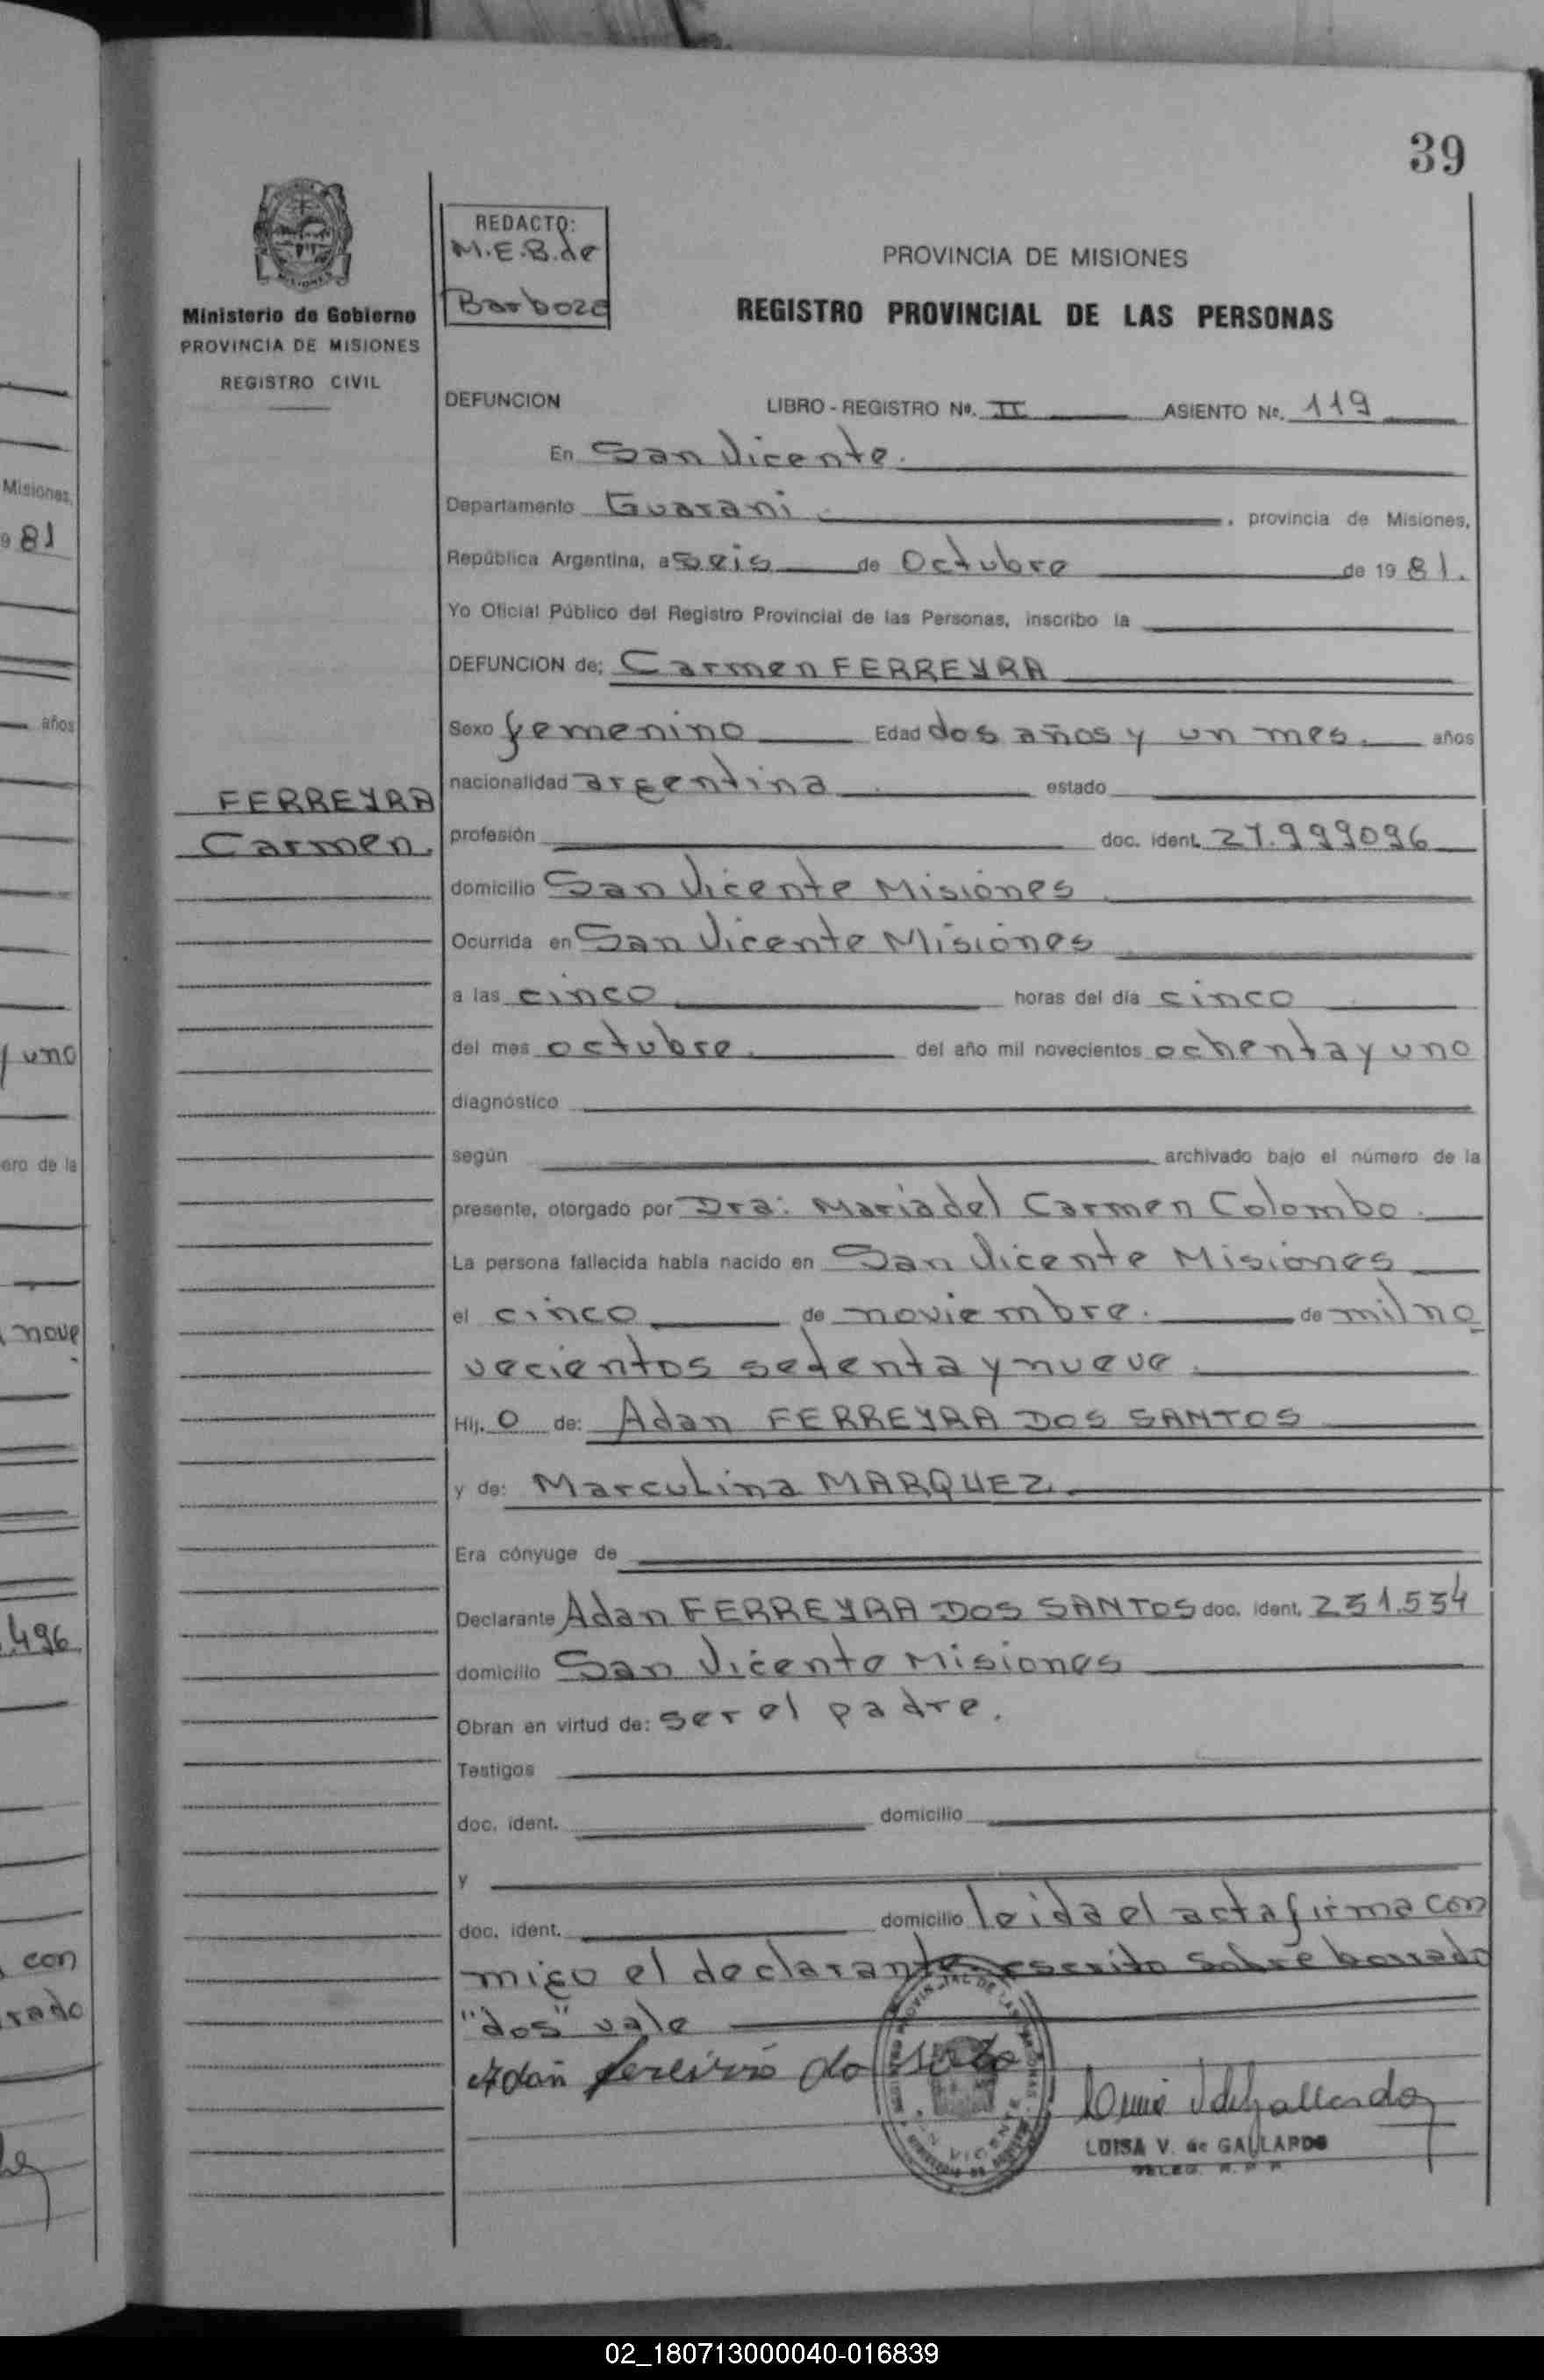 39
REDACTO:
M.E.B.de
Barboza
PROVINCIA DE MISIONES
REGISTRO PROVINCIAL DE LAS PERSONAS
Ministerio de Gobierno
PROVINCIA DE MISIONES
REGISTRO CIVIL
DEFUNCION LIBRO - REGISTRO Nº. II ASIENTO Nº. 119
En San Vicente.
Departamento Guarani. , provincia de Misiones,
República Argentina, a seis de Octubre de 19 81.
Yo Oficial Público del Registro Provincial de las Personas, inscribo la
DEFUNCION de: Carmen FERREYRA
Sexo femenino Edad dos años y un mes. años
nacionalidad argentina estado
FERREYRA
Carmen.
profesión doc. ident. 27.999096
domicilio San Vicente Misiones
Ocurrida en San Vicente Misiones
a las cinco horas del día cinco
del mes octubre. del año mil novecientos ochenta y uno
diagnóstico
según archivado bajo el número de la
presente, otorgado por Dra: Maria del Carmen Colombo.
La persona fallecida había nacido en San Vicente Misiones
el cinco de noviembre. de mil no
vecientos setenta y nueve.
Hij. o de: Adan FERREYRA DOS SANTOS
y de: Marculina MARQUEZ.
Era cónyuge de
Declarante Adan FERREYRA DOS SANTOS doc. ident. 231.534
domicilio San Vicente Misiones
Obran en virtud de: ser el padre.
Testigos
doc. ident. domicilio
y
doc. ident. domicilio leida el acta firma con
migo el declarante escrito sobre borrado
"dos" vale
Adan
LUISA V. de GALLARDO
DELEG. R. P. P.
SAN VICENTE
Misiones,
9 81
años
y uno
ero de la
nove
.496
con
rado
02_180713000040-016839